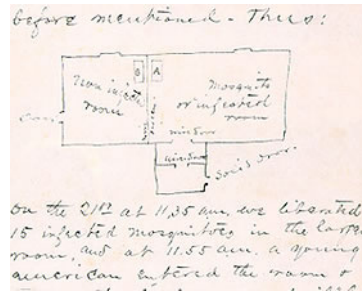 before mentioned - Thus:
B
A
Non infected
room
Mosquito
or infected
room
wire door
wire door
Solid door.
On the 21st at 11.35 am. we liberated
15 infected mosquitoes in the larger
room, and at 11.55 am. a young
american entered the room &